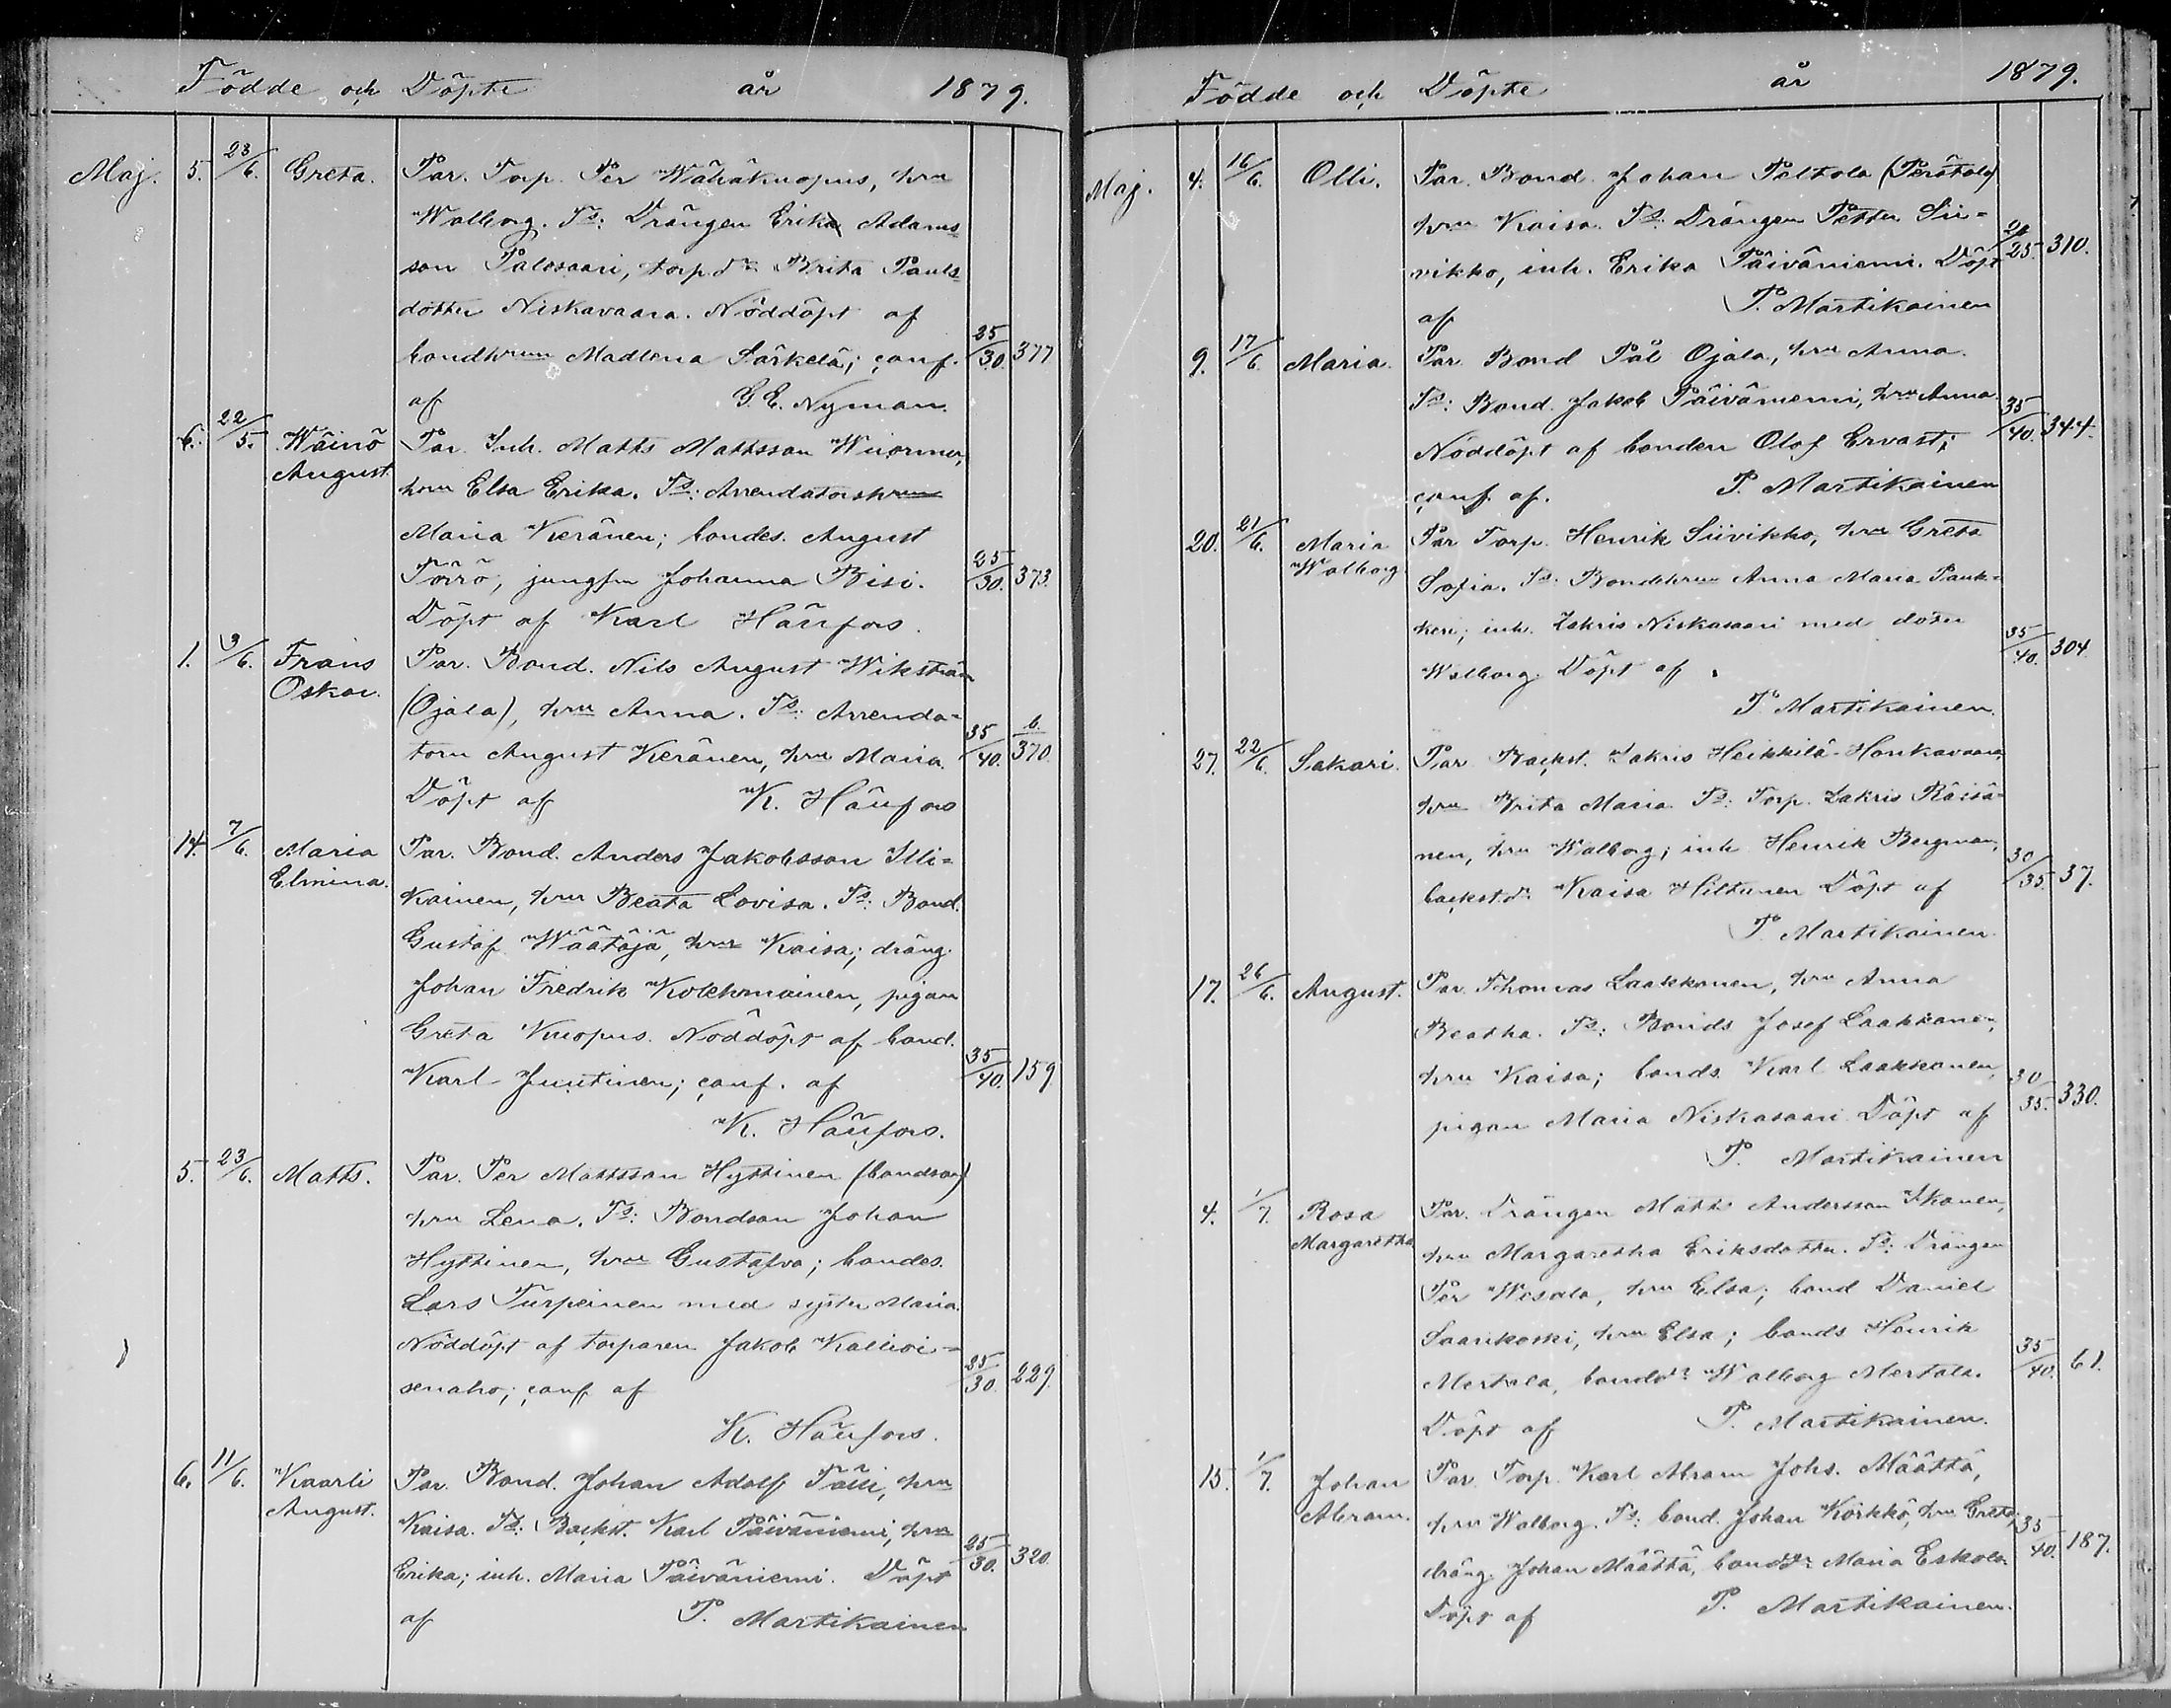 Födde och Döpte år 1879.
Maj. 5. 23/6. Greta. Par. Torp. Per Wähäkuopus, hru
Walborg. Ts: Drängen Erik Adams-
son Palosaari, torp.dr Brita Pauls-
dotter Niskavaara. Nöddöpt af
bondhrun Madlena Särkelä; conf. 25/30. 377
af G. E. Nyman.
6. 22/5. Wäinö Par. Inh. Matts Mattsson Wuorma,
August hru Elsa Erika. Ts: Arrendatorshrun
Maria Keränen; bondes. August
Törrö, jungfru Johanna Bisi. 25/30. 373.
Döpt af Karl Hänfors.
1. 9/6. Frans Par. Bond. Nils August Wikström
Oskar. (Ojala), hru Anna. Ts: Arrenda-
torn August Keränen, hru Maria. 35/40. b. 370.
Döpt af K. Hänfors
14. 7/6. Maria Par. Bond. Anders Jakobsson Illi-
Elmina. kainen, hru Beata Lovisa. Ts: Bond.
Gustaf Määtäjä, hru Kaisa; dräng.
Johan Fredrik Kolehmainen, pigan
Greta Kuopus. Nöddöpt af bond.
Karl Juntinen; conf. af 35/40. 159.
K. Hänfors.
5. 23/6. Matts. Par. Per Mattsson Hyttinen (bondson)
hru Lena. Ts: Bondson Johan
Hyttinen, hru Gustafva; bondes.
Lars Turpeinen med syster Maria.
Nöddöpt af torparen Jakob Kallioi-
senaho; conf. af 25/30. 229.
K. Hänfors.
6. 11/6. Kaarli Par. Bond. Johan Adolf Tälli, hru
August. Kaisa. Ts: Backst. Karl Päiväniemi, hru
Erika; inh. Maria Päiväniemi. Döpt 25/30. 320.
af P. Martikainen
Födde och Döpte år 1879.
Maj. 4. 16/6. Olli. Par. Bond. Johan Paltola (Perätalo)
hru Kaisa. Ts: Drängen Petter Sii-
vikko, inh. Erika Päiväniemi. Döpt 20/25. 310.
af P. Martikainen
9. 17/6. Maria. Par. Bond Pål Ojala, hru Anna.
Ts: Bond. Jakob Päiväniemi, hru Anna. 35/40. 344.
Nöddöpt af bonden Olof Ervasti;
conf. af. P. Martikainen
20. 21/6. Maria Par Torp. Henrik Siivikko, hru Greta
Walborg. Sofia. Ts: Bondehrun Anna Maria Pauk-
keri; inh. Zakris Niskasaari med dotter
Walborg. Döpt af 35/40. 304.
P. Martikainen.
27. 22/6. Sakari. Par Backst. Zakris Heikkilä-Honkavaara,
hru Brita Maria. Ts: Torp. Zakris Räisä-
nen, hru Walborg; inh Henrik Bergman,
backst.dr Kaisa Hiltunen Döpt af 30/35. 37.
P. Martikainen.
17. 26/6. August. Par. Thomas Laakkonen, hru Anna
Beatha. Ts: Bonds Josef Laakkonen,
hru Kaisa; bonds. Karl Laakkonen,
pigan Maria Niskasaari Döpt af 30/35. 330.
P. Martikainen
4. 1/7. Rosa Par. Drängen Matts Andersson Ikonen,
Margaretha hru Margaretha Eriksdotter. Ts: Drängen
Per Wesala, hru Elsa; bond Daniel
Saarikoski, hru Elsa; bonds Henrik
Mertala, bonddr Walborg Mertala. 35/40. 61.
Döpt af P. Martikainen.
15. 1/7. Johan Par. Torp. Karl Abram Johs. Määttä,
Abram. hru Walborg. Ts: bond. Johan Körkkö, hru Greta;
dräng. Johan Määttä, bonddr Maria Eskola 35/40. 187.
Döpt af P. Martikainen.